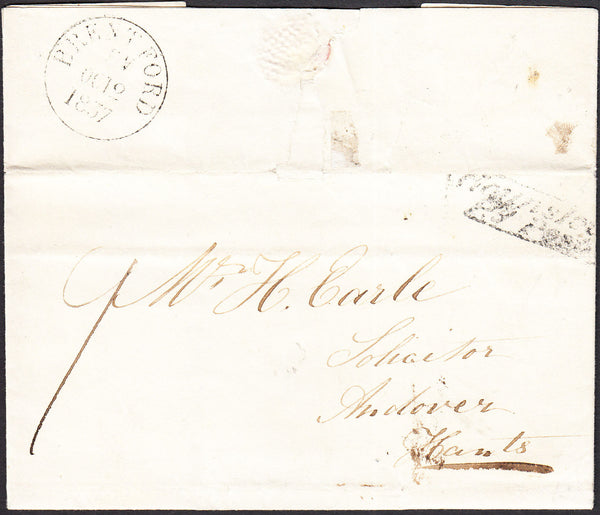 BRENTFORD
OC 19
1837
Mr H. Earle
Solicitor
Andover
Hants